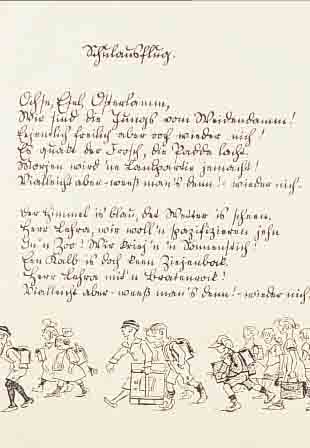 Schulausflug.
Ochse, Esel, Osterlamm,
Wir sind die Jungs vom Weidendamm!
Eijentlich freilich aber och wieder nich!
Es quakt der Frosch, die Padde lacht
Morjen wird 'ne Landpartie jemacht!
Vielleicht aber - weeß man's denn! - wieder nich.
Der Himmel is blau, det Wetter is scheen.
Herr Lehra, wir woll'n spazifizieren jehn
In'n Zoo! Wir krieg'n 'n Sonnenstich!
Een Kalb is doch keen Ziejenbock.
Herr Lehra mit'n Bratenrock!
Vielleicht aber - weeß man's denn! - wieder nich.